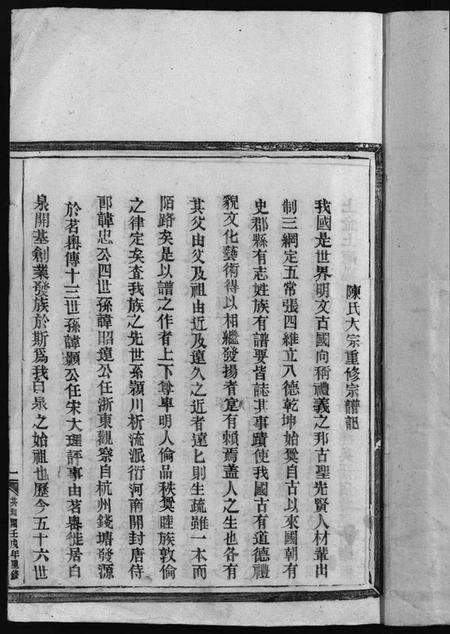 陳氏大宗重修宗譜記
我國是世界明文古國向稱禮義之邦古聖先賢人材輩出
制三綱定五常張四維立八德乾坤始奠自古以來國朝有
史郡縣有志姓族有譜要皆誌其事蹟使我國古有道德禮
貌文化藝術得以相繼發揚者寔有賴焉蓋人之生也各有
其父由父及祖由近及遠久之近者遠上則生疏雖一本而
陌路矣是以譜之作者上下尊卑明人倫品秩奠睦族敦倫
之律定矣查我族之先世系潁川析流派衍河南開封唐侍
郎諱忠公四世孫諱昭遠公任浙東觀察自杭州錢塘發源
於茗嶴傳十三世孫諱顥公任宋大理評事由茗嶴徙居白
泉開基創業發族於斯爲我白泉之始祖也歷今五十六世
一 共和國壬戌年重修